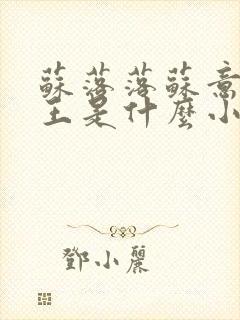 蘇落落蘇意
王是什麼小
鄧小麗